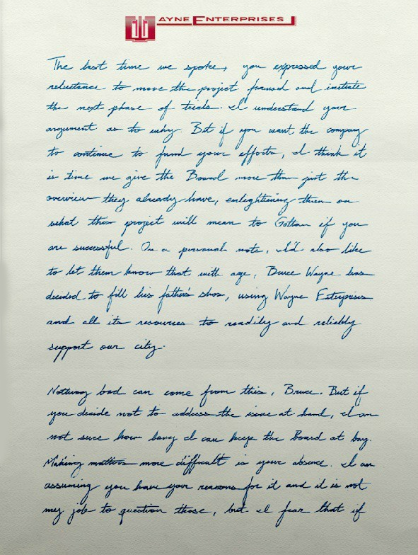 WAYNE ENTERPRISES
The last time we spoke, you expressed your
reluctance to move the project forward and initiate
the next phase of trials. I understand your
argument as to why. But if you want the company
to continue to fund your efforts, I think it
is time we give the Board more than just the
overview they already have, enlightening them on
what this project will mean to Gotham if you
are successful. On a personal note, I'd also like
to let them know that with age, Bruce Wayne has
decided to fill his father's shoes, using Wayne Enterprises
and all its resources to readily and reliably
support our city.
Nothing bad can come from this, Bruce. But if
you decide not to address the issue at hand, I am
not sure how long I can keep the Board at bay.
Making matters more difficult is your absence. I am
assuming you have your reasons for it and it is not
my job to question those, but I fear that if